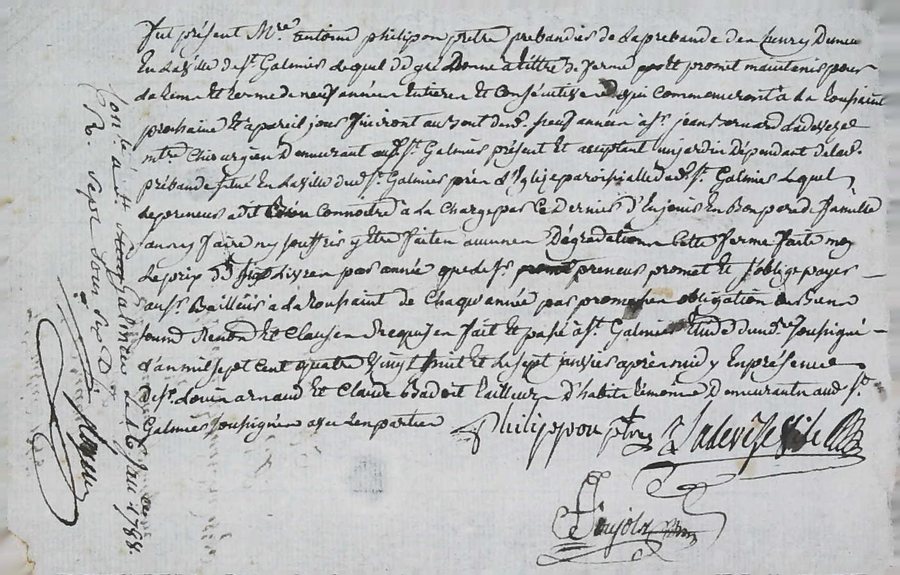 fut présent Mre antoine philipon pretre prebandier de la prebande
En la ville de St Galmier lequel de gré Donne a tittre de ferme et promet maintenir pour
le tems et terme de neuf années Entieres et Consécutives qui commenceront a la toussaint
prochaine Et a pareil jour finiront auront dud. neuf années a sr jean
mtre Chirurgien Demeurant aud. St Galmier présent et acceptant un jardin Dépendant de lad.
prébande situé En la ville dud. St Galmier près l'Eglise paroissialle de St Galmier lequel
le preneur a dit bien Connoitre a la Charge par Ce Dernier d'En jouir En Bon pere de famille
sans y faire ny souffrir y Etre fait aucunes Dégradations Cette ferme faite moy
le prix de livres par année que led. sr preneur promet et s'oblige payer
aud. sr Bailleur a la toussaint de Chaque année par promesses obligation de Biens
soumis Renon Et Clauses Requises fait et passé a St Galmier Etude du no. soussigné
l'an mil sept cent quatre vingt huit et le sept janvier après midy En présence
de sr Louis arnaud Et Claude Badoit tailleur d'habits temoins Demeurant aud. St
Galmier soussignés avec les parties
Philippon ptre Ladevèze fils
Pujols
Con. à St Galmier le 16 janv. 1788.
R. sept sous six D.